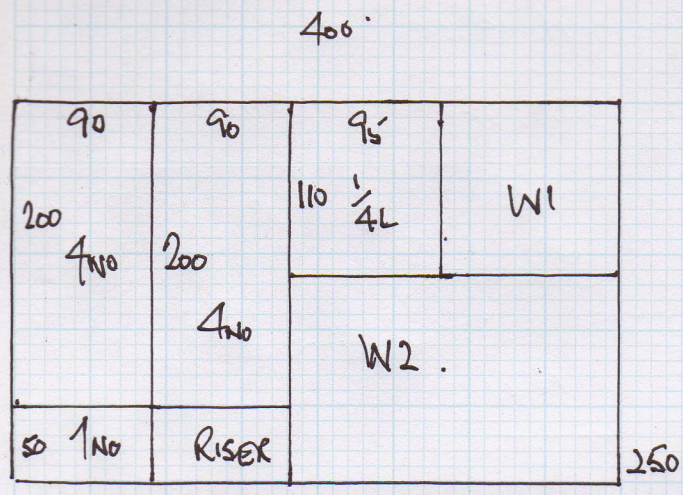 400
90
200
4NO
90
200
4NO
95
110
1/4L
W1
W2
50 1NO
RISER
250